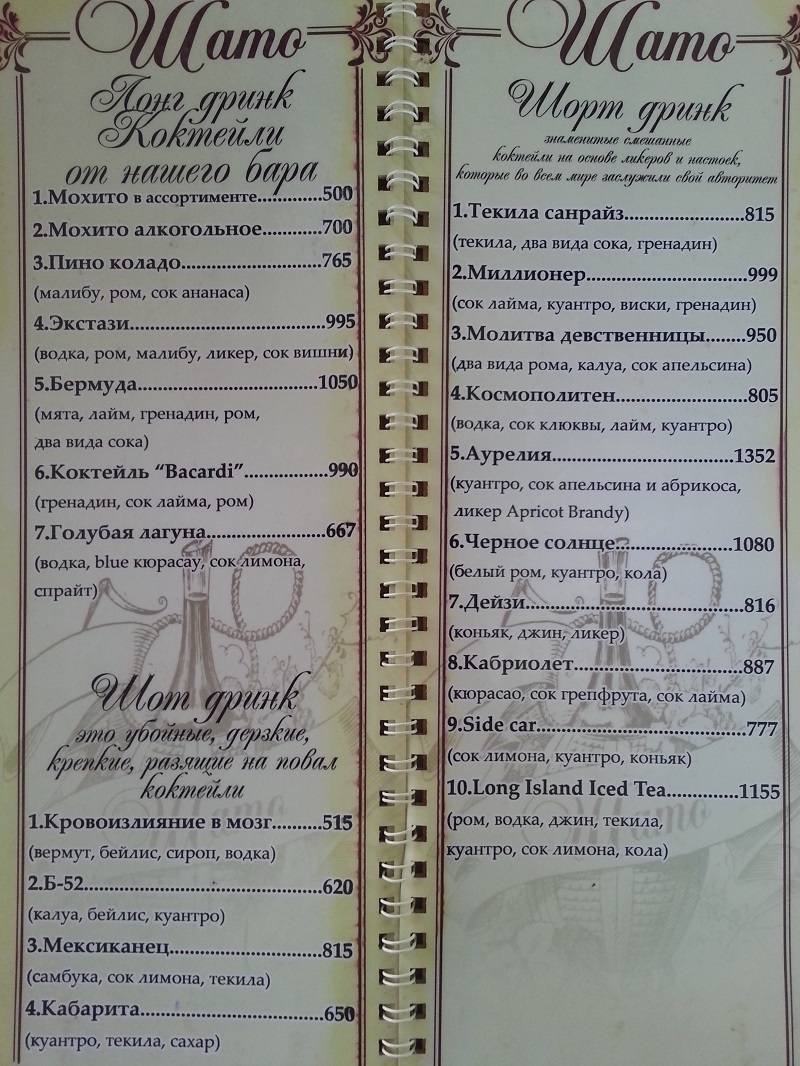 Шато
Лонг дринк
Коктейли
от нашего бара
1.Мохито в ассортименте............500
2.Мохито алкогольное...........700
3.Пино коладо.........................765
(малибу, ром, сок ананаса)
4.Экстази...................................995
(водка, ром, малибу, ликер, сок вишни)
5.Бермуда................................1050
(мята, лайм, гренадин, ром,
два вида сока)
6.Коктейль “Bacardi”...............990
(гренадин, сок лайма, ром)
7.Голубая лагуна......................667
(водка, blue кюрасау, сок лимона,
спрайт)
Шот дринк
это убойные, дерзкие,
крепкие, разящие на повал
коктейли
1.Кровоизлияние в мозг.........515
(вермут, бейлис, сироп, водка)
2.Б-52...........................................620
(калуа, бейлис, куантро)
3.Мексиканец...........................815
(самбука, сок лимона, текила)
4.Кабарита.................................650
(куантро, текила, сахар)
Шато
Шорт дринк
знаменитые смешанные
коктейли на основе ликеров и настоек,
которые во всем мире заслужили свой авторитет
1.Текила санрайз.....................815
(текила, два вида сока, гренадин)
2.Миллионер.............................999
(сок лайма, куантро, виски, гренадин)
3.Молитва девственницы.......950
(два вида рома, калуа, сок апельсина)
4.Космополитен........................805
(водка, сок клюквы, лайм, куантро)
5.Аурелия................................1352
(куантро, сок апельсина и абрикоса,
ликер Apricot Brandy)
6.Черное солнце....................1080
(белый ром, куантро, кола)
7.Дейзи.......................................816
(коньяк, джин, ликер)
8.Кабриолет...............................887
(кюрасао, сок грепфрута, сок лайма)
9.Side car.....................................777
(сок лимона, куантро, коньяк)
10.Long Island Iced Tea............1155
(ром, водка, джин, текила,
куантро, сок лимона, кола)